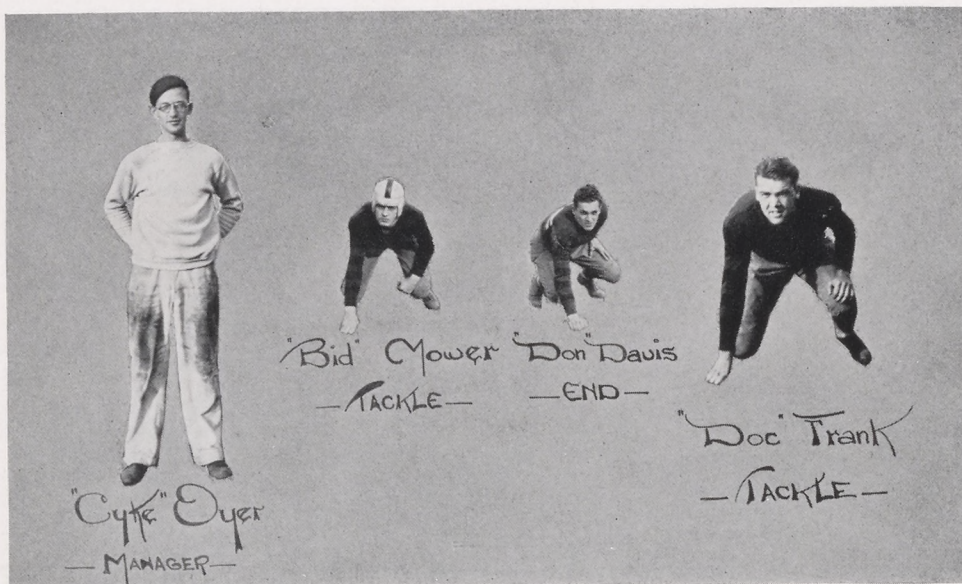 "Bid" Mower
—TACKLE—
"Don" Davis
—END—
"Doc" Trank
—TACKLE—
"Cyke" Oyer
—MANAGER—